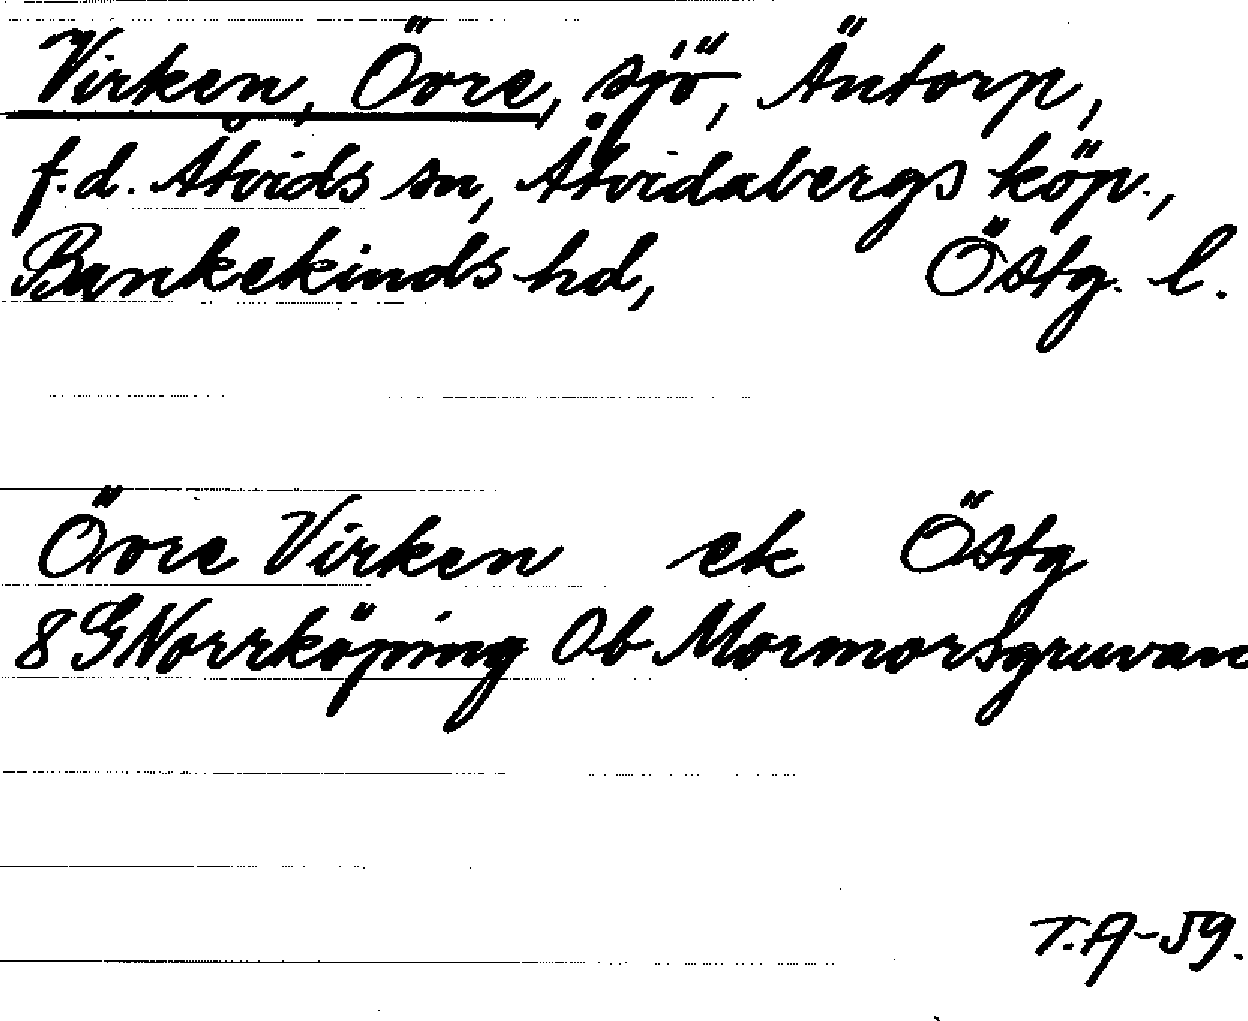 Virken, Övre, sjö, Äntorp,
f.d. Åtvids sn, Åtvidabergs köp.,
Bankekinds hd, Östg. l.
Övre Virken ek Östg
8G Norrköping Ob Mormorsgruvan
T.A-59.